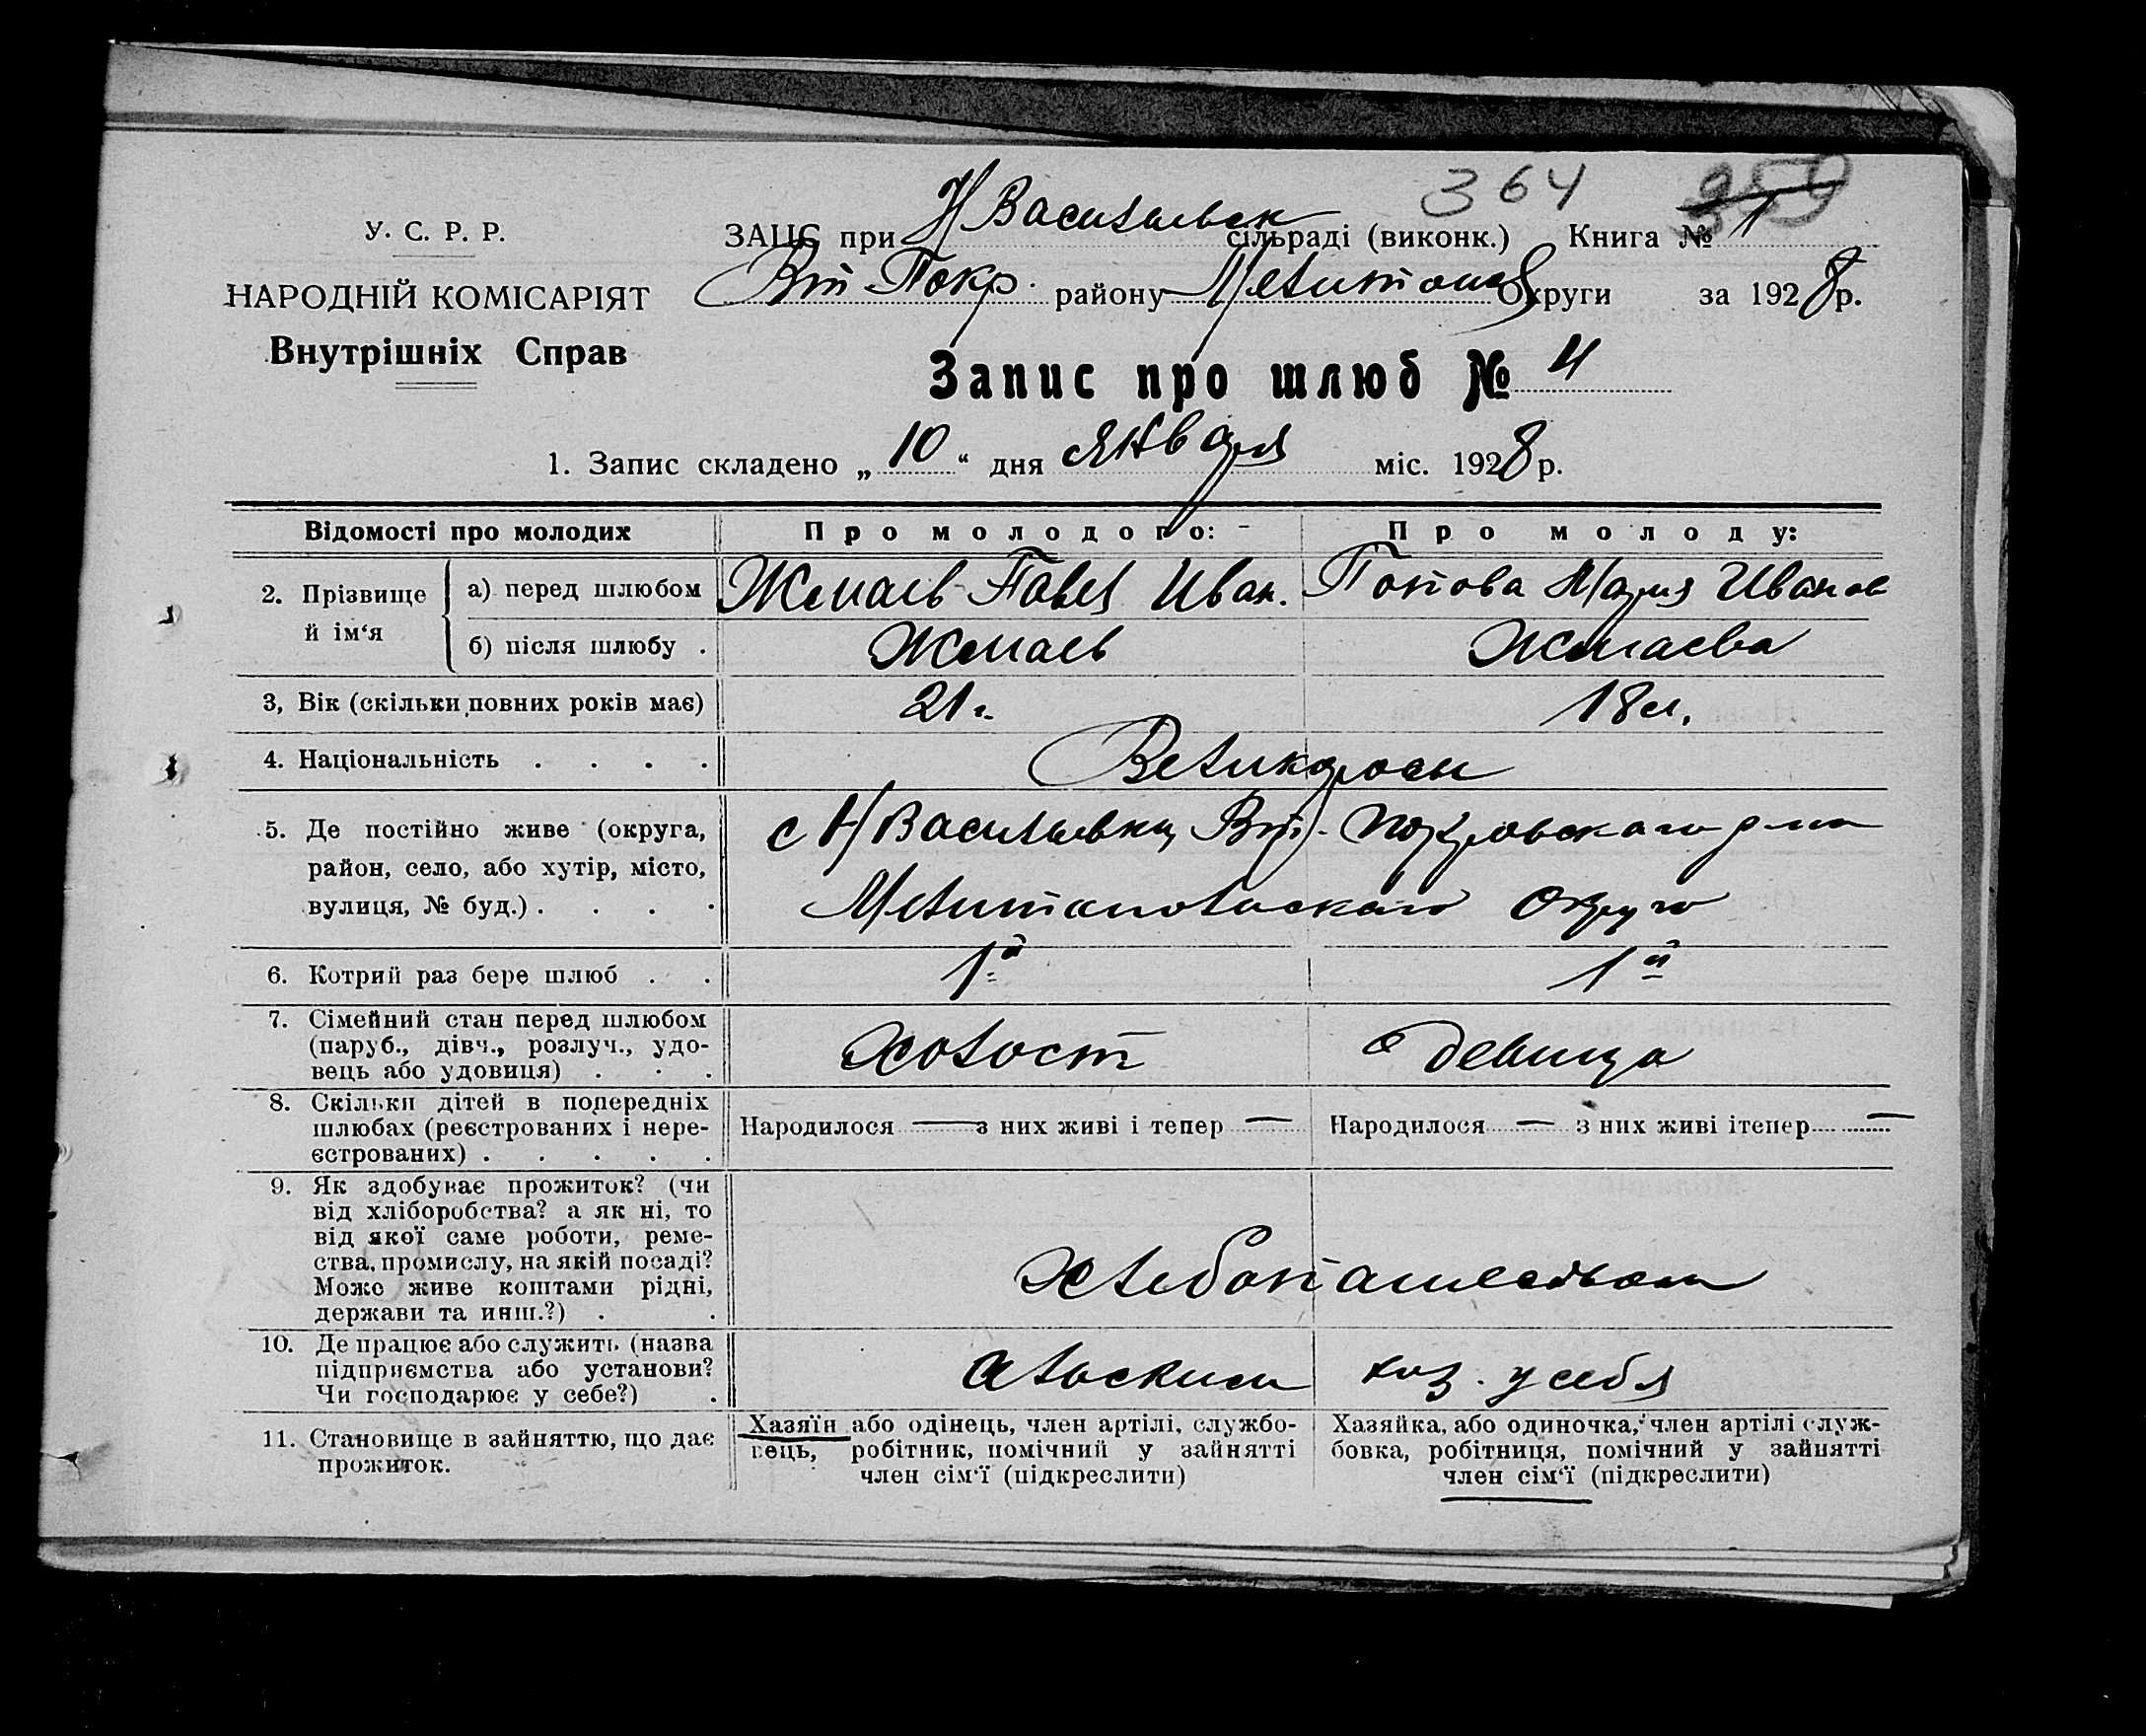 364 359
У. С. Р. Р.
НАРОДНІЙ КОМІСАРІЯТ
Внутрішніх Справ
ЗАЦС при Н Васильевск сільраді (виконк.) Книга № 1
Вт Покр. району Мелитопол Округи за 1928 р.
Запис про шлюб № 4
1. Запис складено „ 10 “ дня января міс. 1928 р.
Відомості про молодих
Про молодого:
Про молоду:
2. Прізвище й ім‘я
а) перед шлюбом
Жмаев Павел Иван.
Попова Мария Иванов
б) після шлюбу .
Жмаев
Жмаева
3, Вік (скільки повних років має)
21 г.
18 л.
4. Національність . . . .
Великоросы
5. Де постійно живе (округа,
район, село, або хутір, місто,
вулиця, № буд.) . . . .
с Н Васильевки, Вт-Покровского р-на
Мелитопольского Округа
6. Котрий раз бере шлюб . .
1й
1й
7. Сімейний стан перед шлюбом
(паруб., дівч., розлуч., удо-
вець або удовиця) . . .
Холост
девица
8. Скільки дітей в попередніх
шлюбах (реєстрованих і нере-
єстрованих) . . . . .
Народилося — з них живі і тепер —
Народилося — з них живі ітепер —
9. Як здобуває прожиток? (чи
від хліборобства? а як ні, то
від якої саме роботи, реме-
ства, промислу, на якій посаді?
Може живе коштами рідні,
держави та инш.?) . .
Хлебопашеством
10. Де працює або служить (назва
підприємства або установи?
Чи господарює у себе?) .
сельским хоз. у себя
11. Становище в зайняттю, що дає
прожиток.
Хазяїн або одінець, член артілі, службо-
вець, робітник, помічний у зайнятті
член сім‘ї (підкреслити)
Хазяйка, або одиночка, член артілі служ-
бовка, робітниця, помічний у зайнятті
член сім‘ї (підкреслити)